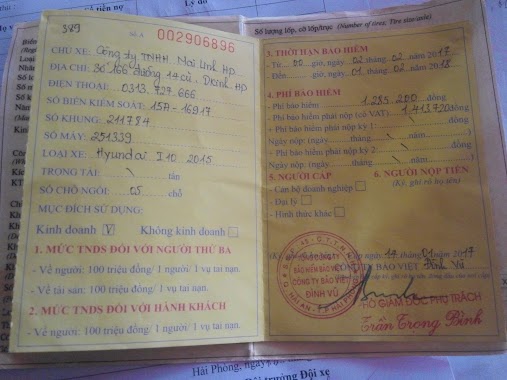 389
Số A 002906896
CHỦ XE: Công ty TNHH Mai Linh HP
ĐỊA CHỈ: Số 166 đường 14 cũ - HP
ĐIỆN THOẠI: 0313. 727.666
SỐ BIỂN KIỂM SOÁT: 15A - 16917
SỐ KHUNG: 211784
SỐ MÁY: 251339
LOẠI XE: Hyundai I10 2015
TRỌNG TẢI: \ tấn
SỐ CHỖ NGỒI: 05 chỗ
MỤC ĐÍCH SỬ DỤNG:
Kinh doanh V Không kinh doanh
1. MỨC TNDS ĐỐI VỚI NGƯỜI THỨ BA
- Về người: 100 triệu đồng/ 1 người/ 1 vụ tai nạn.
- Về tài sản: 100 triệu đồng/ 1 vụ tai nạn.
2. MỨC TNDS ĐỐI VỚI HÀNH KHÁCH
- Về người: 100 triệu đồng/ 1 người/ 1 vụ tai nạn.
Số lượng lốp, cỡ lốp/trục (Number of tires; Tire size/axle)
3. THỜI HẠN BẢO HIỂM
- Từ 00 giờ, ngày 02 tháng 02 năm 2017
- Đến giờ, ngày 02 tháng 02 năm 2018
4. PHÍ BẢO HIỂM
- Phí bảo hiểm 1.285.200 đồng
- Phí bảo hiểm phải nộp (có VAT) 1.413.720 đồng
+ Phí bảo hiểm phải nộp kỳ 1: \ đồng
Ngày nộp: (ngày \ tháng năm )
+ Phí bảo hiểm phải nộp kỳ 2 \ đồng
Ngày nộp: (ngày tháng \ năm )
5. NGƯỜI CẤP 6. NGƯỜI NỘP TIỀN
- Cán bộ doanh nghiệp (Ký, ghi rõ họ tên)
- Đại lý
- Hình thức khác
Cấp ngày 14 tháng 01 năm 2017
CÔNG TY BẢO VIỆT Đình Vũ
TỔNG CÔNG TY
BẢO HIỂM BẢO VIỆT
CÔNG TY BẢO VIỆT
ĐÌNH VŨ
HẢI AN - T.P HẢI PHÒNG
PHÓ GIÁM ĐỐC PHỤ TRÁCH
Trần Trọng Bình
Hải Phòng, ngày
Đội trưởng Đội xe